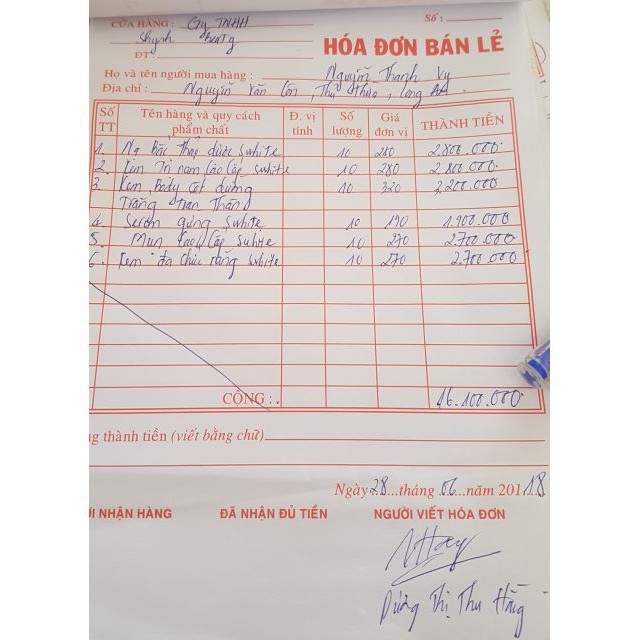 CỬA HÀNG : Cty TNHH
Số :
ĐT:
HÓA ĐƠN BÁN LẺ
Họ và tên người mua hàng : Nguyễn Thanh Vy
Địa chỉ : Nguyễn Văn Côn, Thủ Thừa, Long An.
Số TT Tên hàng và quy cách phẩm chất Đ. vị tính Số lượng Giá đơn vị THÀNH TIỀN
1. 10 280 2.800.000
2. Kem Trị nám Cao Cấp Swhite 10 280 2.800.000
3. Kem Body 10 320 3.200.000
Trắng
4. Serum gừng Swhite 10 190 1.900.000
5. Mụn Cao Cấp Swhite 10 270 2.700.000
6. Kem đa chức năng Swhite 10 270 2.700.000
CỘNG : 16.100.000
thành tiền (viết bằng chữ)
Ngày 28 tháng 06 năm 201 18
NHẬN HÀNG ĐÃ NHẬN ĐỦ TIỀN NGƯỜI VIẾT HÓA ĐƠN
Thị Thu Hằng